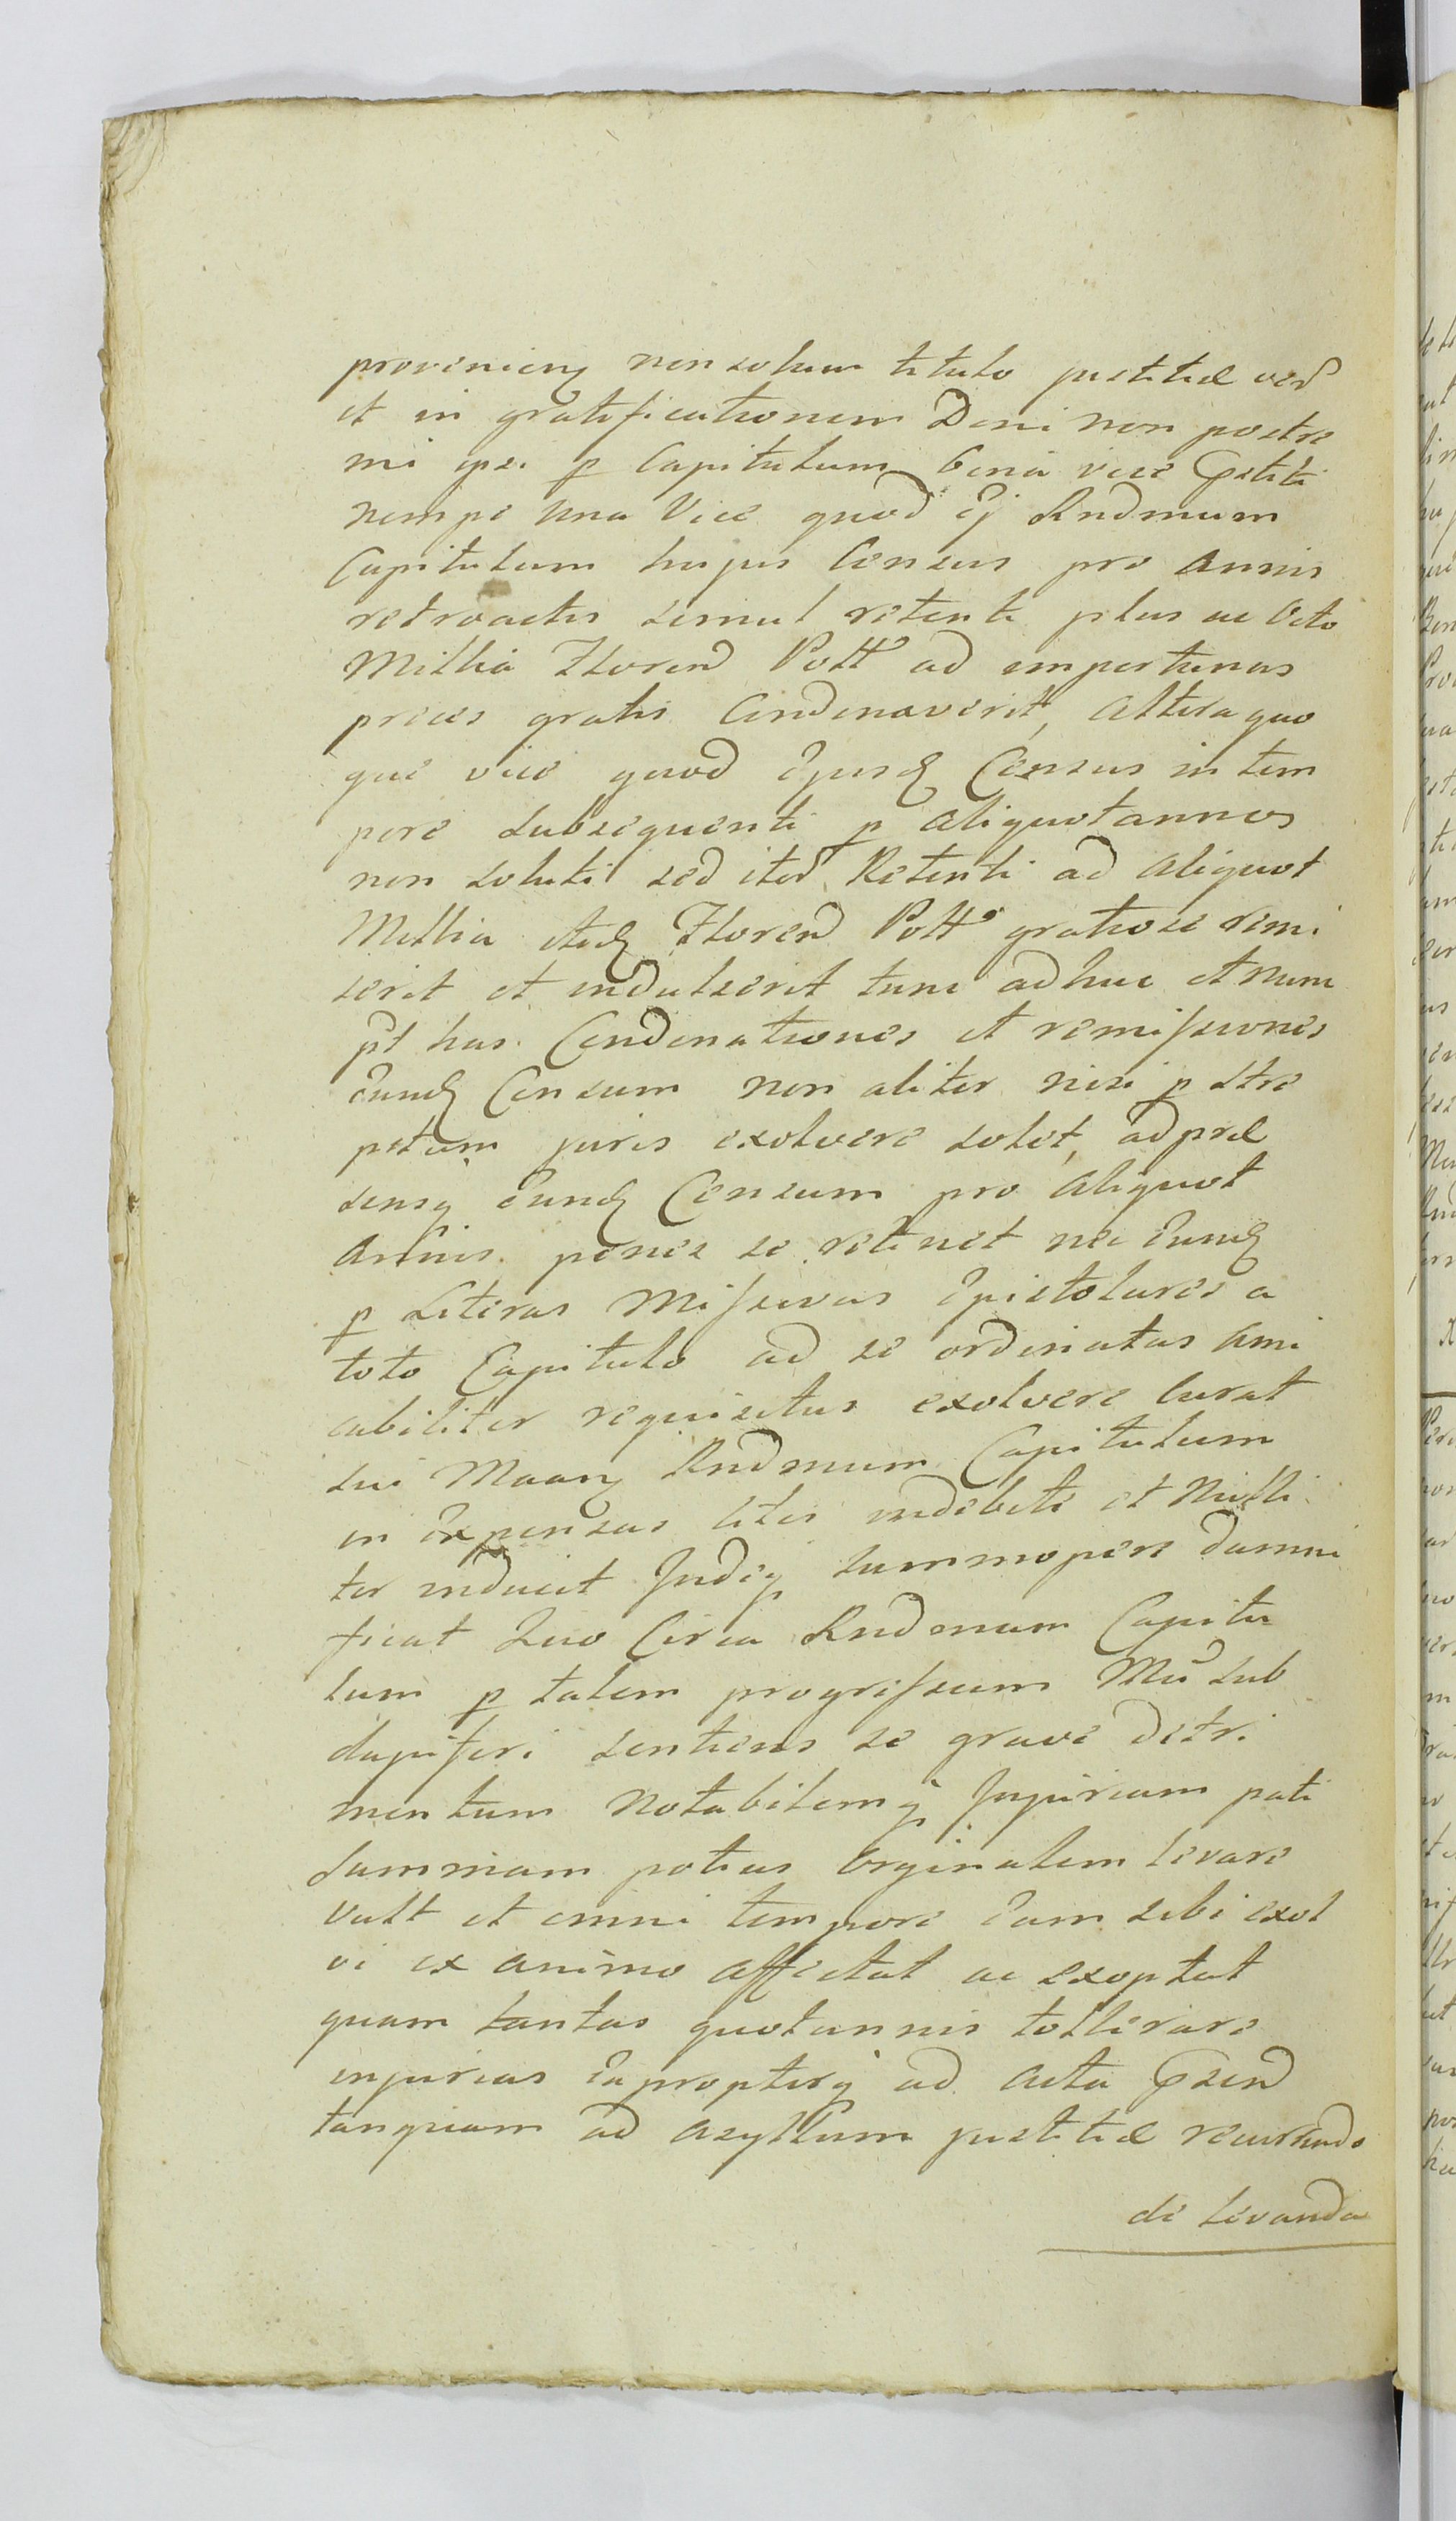 provenieng non solum titulo justitiæ verũ
et in gratificationem Doni non postre
mi ipsi p Capitulum bina vice Pstiti
nempe una Vice quod ej Rndmum
Capitulum hujus Census pro Annis
retroactis simul retenti plus ac Octo
Millia Floren Poll ad importunas
preces gratis Condonaverit, Altera quo
que vice quod Ejusd Census in tem
pore subsequenti p aliquot annos
non soluti sed iter Retenti ad Aliquot
Millia itid Floren Poll gratiose remi
serit et indulserit tunc adhuc et nunc
pt has Condonationes et remissiones
Eund Censum non aliter nisi p stre
pitum juris exolvere solet, ad præ
sensq Eund Censum pro Aliquot
Annis penes se retinet nec Eund
p Literas Missivas Epistolares a
toto Capitulo ad se ordinatas Ami
cabiliter requisitus exolvere curat
sui Maang Rndmum Capitulum
in Expensas litis indebite et Nulli
ter inducit Indeq summopere damni
ficat Quo Circa Rndmum Capitu
lum p talem progressum Mci Sub
dapiferi sentiens se grave detri
mentum Notabilemq Injuriam pati
summam potius Orginalem levare
vult et omni tempore Eam sibi exol
vi ex animo affectat ac exoptat
quam tantas quotannis tollerare
injurias Eapropterq ad Acta Psen
tanquam ad asyllum justitiæ recurrendo
de levanda